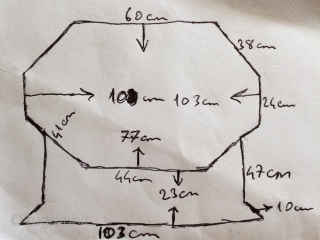 60cm
38cm
103cm
24cm
41cm
77cm
44cm
47cm
23cm
10cm
103cm